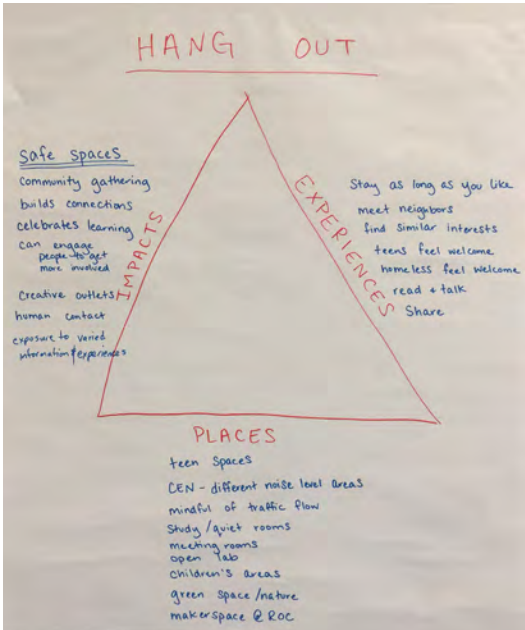 HANG OUT
Safe Spaces
Community gathering
builds connections
celebrates learning
can engage
people to get
more involved
Creative outlets
human contact
exposure to varied
information & experiences
IMPACTS
EXPERIENCES
Stay as long as you like
meet neighbors
find similar interests
teens feel welcome
homeless feel welcome
read + talk
Share
PLACES
teen spaces
CEN - different noise level areas
mindful of traffic flow
Study/quiet rooms
meeting rooms
open lab
children's areas
green space/nature
makerspace @ ROC